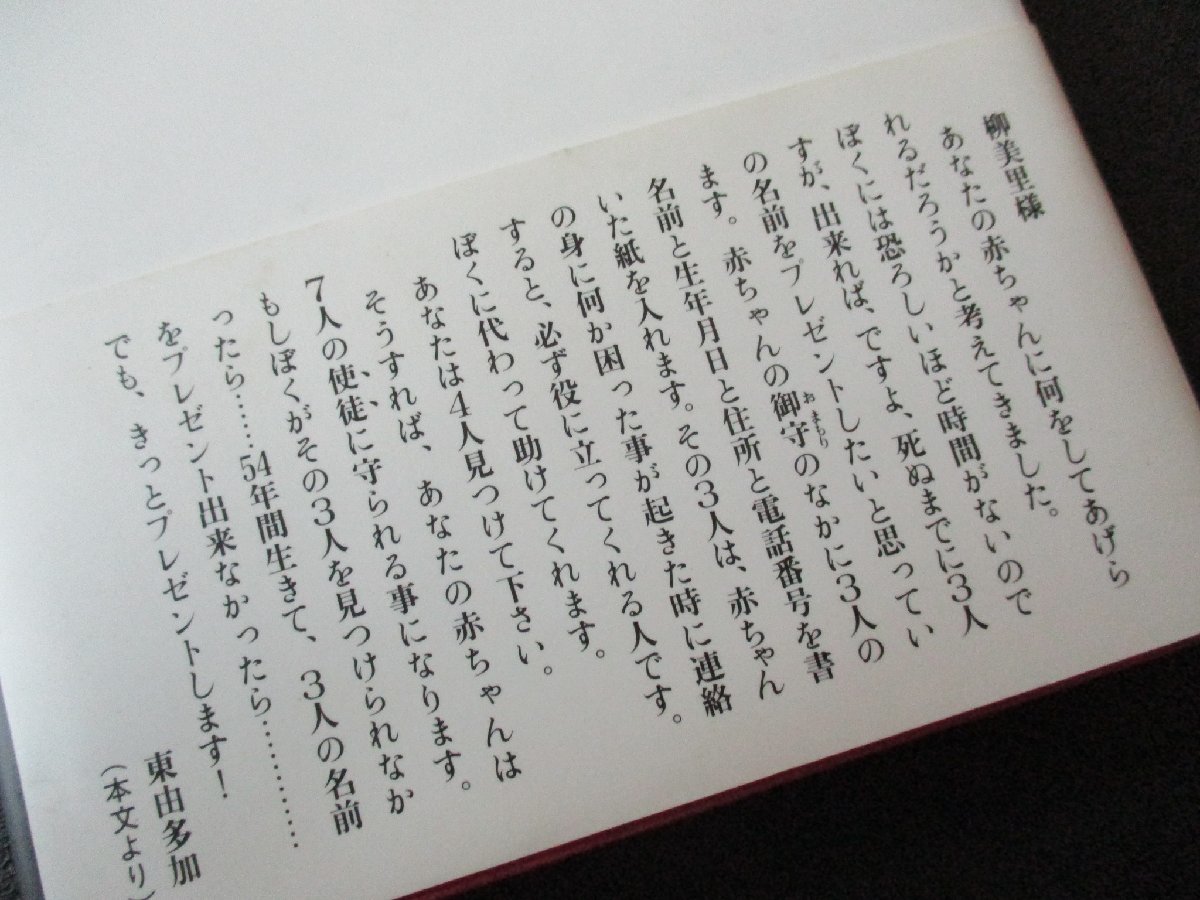 柳美里様
あなたの赤ちゃんに何をしてあげら
れるだろうかと考えてきました。
ぼくには恐ろしいほど時間がないので
すが、出来れば、ですよ、死ぬまでに3人
の名前をプレゼントしたいと思ってい
ます。赤ちゃんの御守おまもりのなかに3人の
名前と生年月日と住所と電話番号を書
いた紙を入れます。その3人は、赤ちゃん
の身に何か困った事が起きた時に連絡
すると、必ず役に立ってくれる人です。
ぼくに代わって助けてくれます。
あなたは4人見つけて下さい。
そうすれば、あなたの赤ちゃんは
7人の使徒に守られる事になります。
もしぼくがその3人を見つけられなか
ったら……54年間生きて、3人の名前
をプレゼント出来なかったら…………
でも、きっとプレゼントします!
東由多加
(本文より)